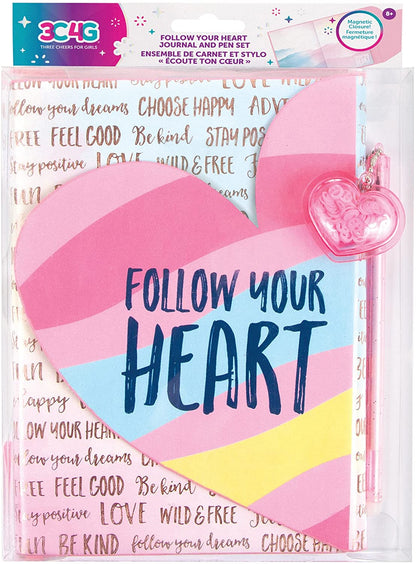 3C4G
THREE CHEERS FOR GIRLS
FOLLOW YOUR HEART
JOURNAL AND PEN SET
ENSEMBLE DE CARNET ET STYLO
« ÉCOUTE TON CŒUR »
Magnetic
Closure!
Fermeture
magnétique!
8+
LIVE LOVE WILD
follow your dreams CHOOSE HAPPY
FREE FEEL GOOD Be kind STAY POS
stay positive LOVE WILD & FREE
dreams
FOLLOW YOUR
HEART
happy
FOLLOW YOUR HEART
follow your dreams
FREE FEEL GOOD Be kind
stay positive LOVE WILD & FREE
BE KIND follow your dreams CHOOSE HAPPY